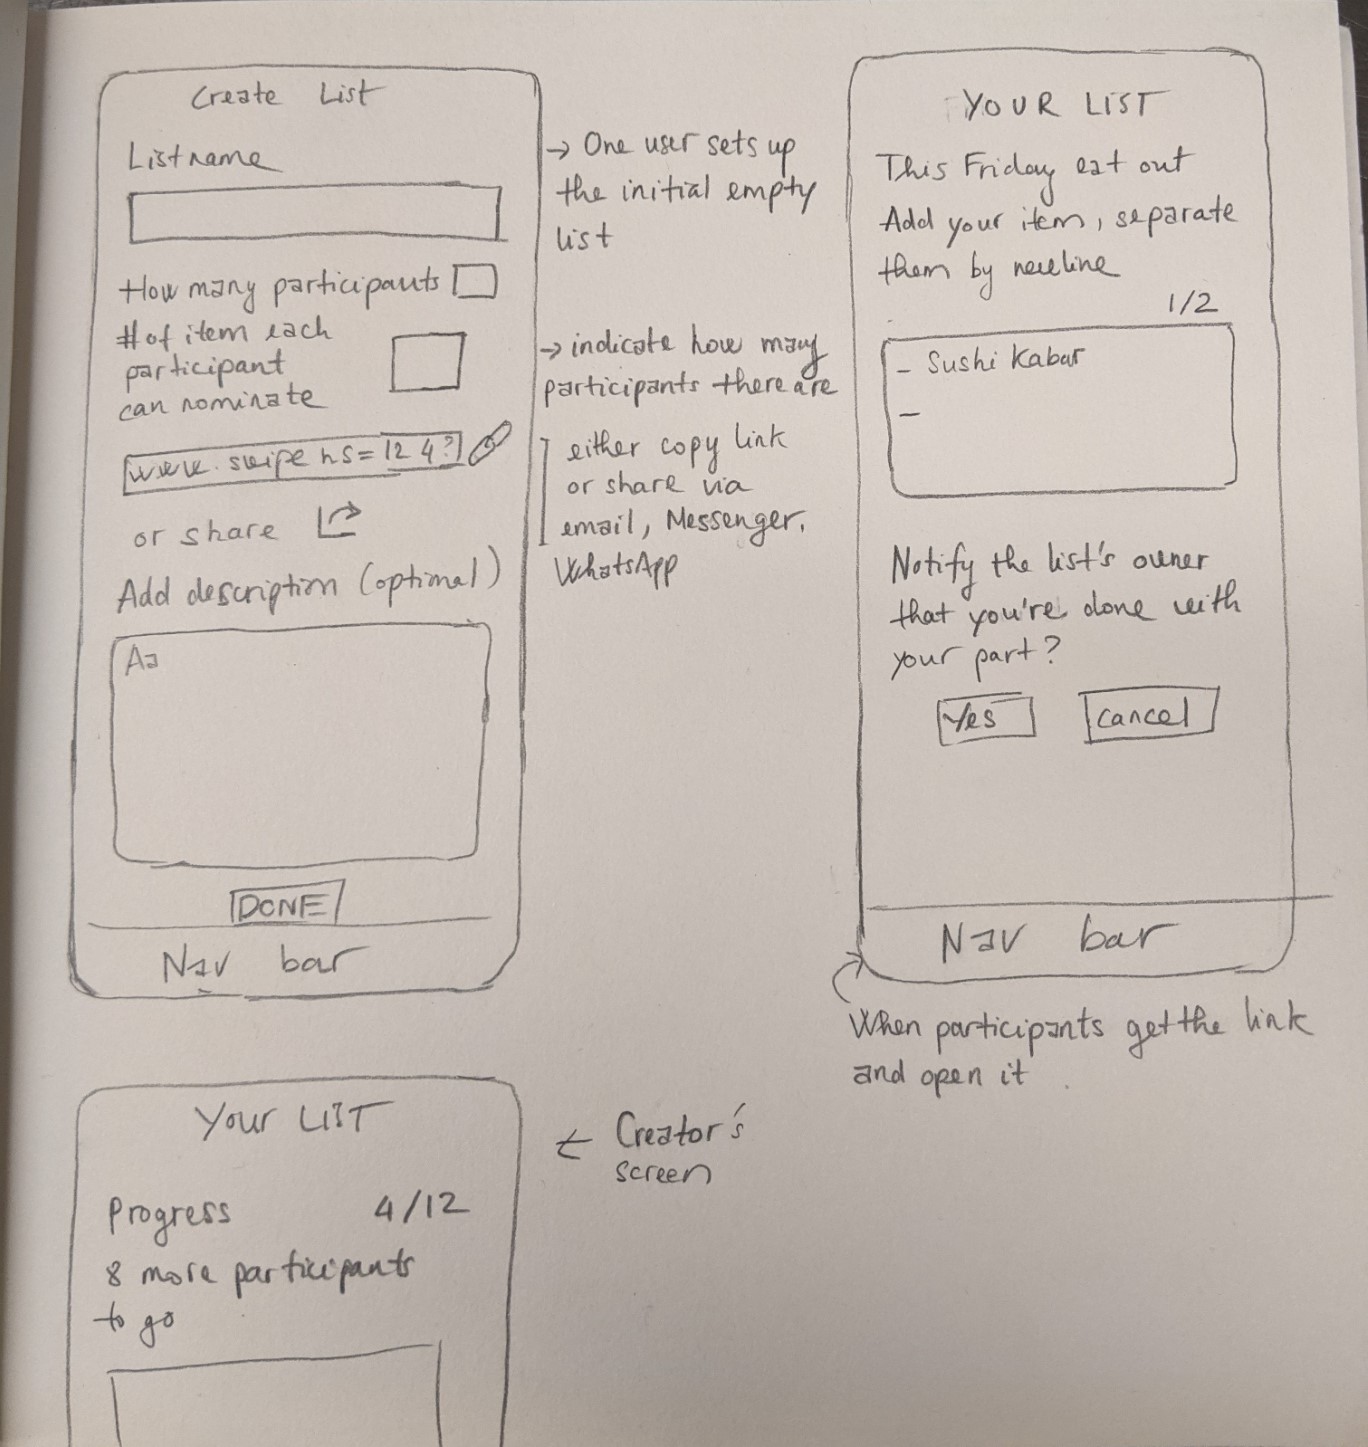 Create List
Listname
How many participants
# of item each
participant
can nominate
or share
Add description (optimal)
Aa
DONE
Nav bar
→ One user sets up
the initial empty
list
→ indicate how many
participants there are
either copy link
or share via
email, Messenger.
WhatsApp
YOUR LIST
This Friday eat out
Add your item, separate
them by newline
1/2
- Sushi Kabar
-
Notify the list's owner
that you're done with
your part?
Yes
cancel
Nav bar
When participants get the link
and open it
Your LIST
Progress 4/12
8 more participants
to go
← Creator's
screen